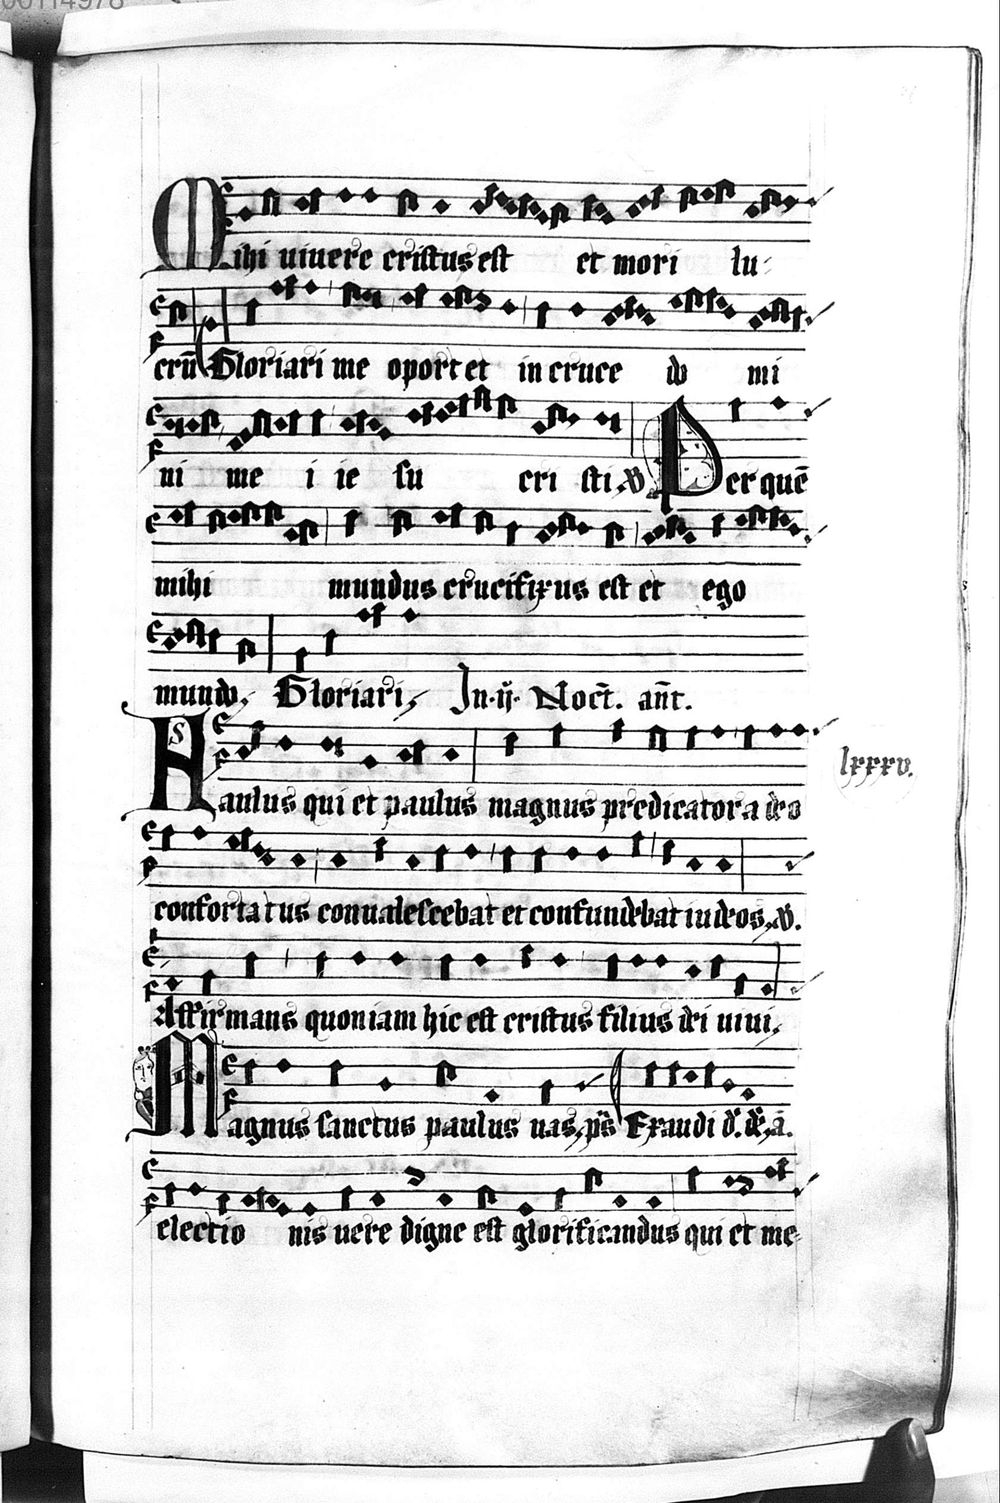 00114978
Mihi uiuere cristus est et mori lu-
crū Gloriari me oportet in cruce do mi
ni me i ie su cri sti. V Per quē
mihi mundus crucifixus est et ego
mundo. Gloriari. In ij Noct. ant.
S Paulus qui et paulus magnus predicator a deo
lxxxv.
confortatus conualescebat et confundebat iudeos. V.
Affirmans quoniam hic est cristus filius dei uiui.
Magnus sanctus paulus uas. ps Exaudi d. d. a.
electio nis uere digne est glorificandus qui et me-